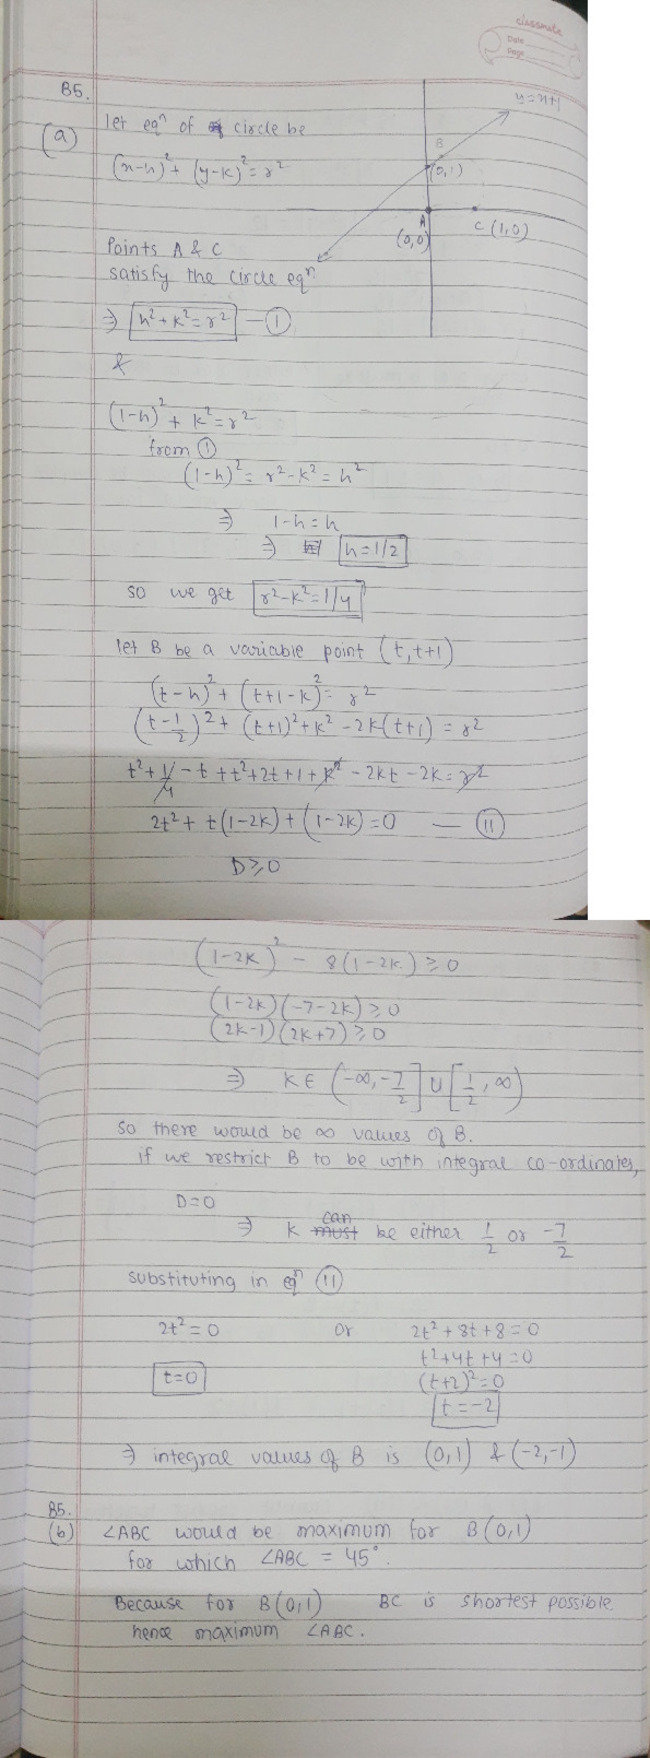 classmate
Date
Page
B5.
(a)
let eqⁿ of circle be
(x-h)²+(y-k)²=r²
y=x+1
B
(0,1)
A
(0,0)
C (1,0)
Points A & C
satisfy the circle eqⁿ
⇒ h²+k²=r² — (I)
&
(1-h)²+k²=r²
from (I)
(1-h)²= r²-k²= h²
⇒ 1-h=h
⇒ h=1/2
so we get r²-k²=1/4
let B be a variable point (t,t+1)
(t-h)²+(t+1-k)²=r²
(t-1/2)²+(t+1)²+k²-2k(t+1)=r²
t²+1/4-t+t²+2t+1+k²-2kt-2k=r²
2t²+t(1-2k)+(1-2k)=0 — (II)
D≥0
(1-2k)²-8(1-2k)≥0
(1-2k)(-7-2k)≥0
(2k-1)(2k+7)≥0
⇒ K∈(-∞,-7/2]∪[1/2,∞)
so there would be ∞ values of B.
if we restrict B to be with integral co-ordinates,
D=0
⇒ K must can be either 1/2 or -7/2
substituting in eqⁿ (II)
2t²=0 or 2t²+8t+8=0
t²+4t+4=0
t=0 (t+2)²=0
t=-2
⇒ integral values of B is (0,1) & (-2,-1)
B5.
(b) ∠ABC would be maximum for B(0,1)
for which ∠ABC = 45°.
Because for B(0,1) BC is shortest possible
hence maximum ∠ABC.